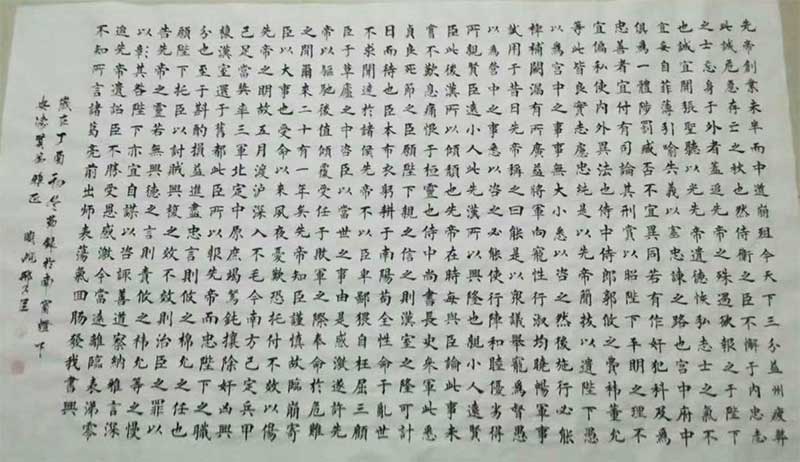 先帝創業未半而中道崩殂今天下三分益州疲弊
此誠危急存亡之秋也然侍衛之臣不懈于內忠志
之士忘身于外者蓋追先帝之殊遇欲報之于陛下
也誠宜開張聖聽以光先帝遺德恢弘志士之氣不
宜妄自菲薄引喻失義以塞忠諫之路也宮中府中
俱為一體陟罰臧否不宜異同若有作奸犯科及為
忠善者宜付有司論其刑賞以昭陛下平明之理不
宜偏私使內外異法也侍中侍郎郭攸之費禕董允
等此皆良實志慮忠純是以先帝簡拔以遺陛下愚
以為宮中之事事無大小悉以咨之然後施行必能
裨補闕漏有所廣益將軍向寵性行淑均曉暢軍事
試用于昔日先帝稱之曰能是以眾議舉寵為督愚
以為營中之事悉以咨之必能使行陣和睦優劣得
所親賢臣遠小人此先漢所以興隆也親小人遠賢
臣此後漢所以傾頹也先帝在時每與臣論此事未
嘗不歎息痛恨于桓靈也侍中尚書長史參軍此悉
貞良死節之臣願陛下親之信之則漢室之隆可計
日而待也臣本布衣躬耕于南陽苟全性命于亂世
不求聞達於諸侯先帝不以臣卑鄙猥自枉屈三顧
臣于草廬之中咨臣以當世之事由是感激遂許先
帝以驅馳後值傾覆受任于敗軍之際奉命於危難
之間爾來二十有一年矣先帝知臣謹慎故臨崩寄
臣以大事也受命以來夙夜憂歎恐托付不效以傷
先帝之明故五月渡瀘深入不毛今南方已定兵甲
已足當獎率三軍北定中原庶竭駑鈍攘除奸凶興
復漢室還于舊都此臣所以報先帝而忠陛下之職
分也至于斟酌損益進盡忠言則攸之禕允之任也
願陛下托臣以討賊興復之效不效則治臣之罪以
告先帝之靈若無興德之言則責攸之禕允等之慢
以彰其咎陛下亦宜自謀以咨諏善道察納雅言深
追先帝遺詔臣不勝受恩感激今當遠離臨表涕零
不知所言諸葛亮前出師表蕩氣回腸發我書興
歲在丁酉初冬錄於南窗燈下
雅正